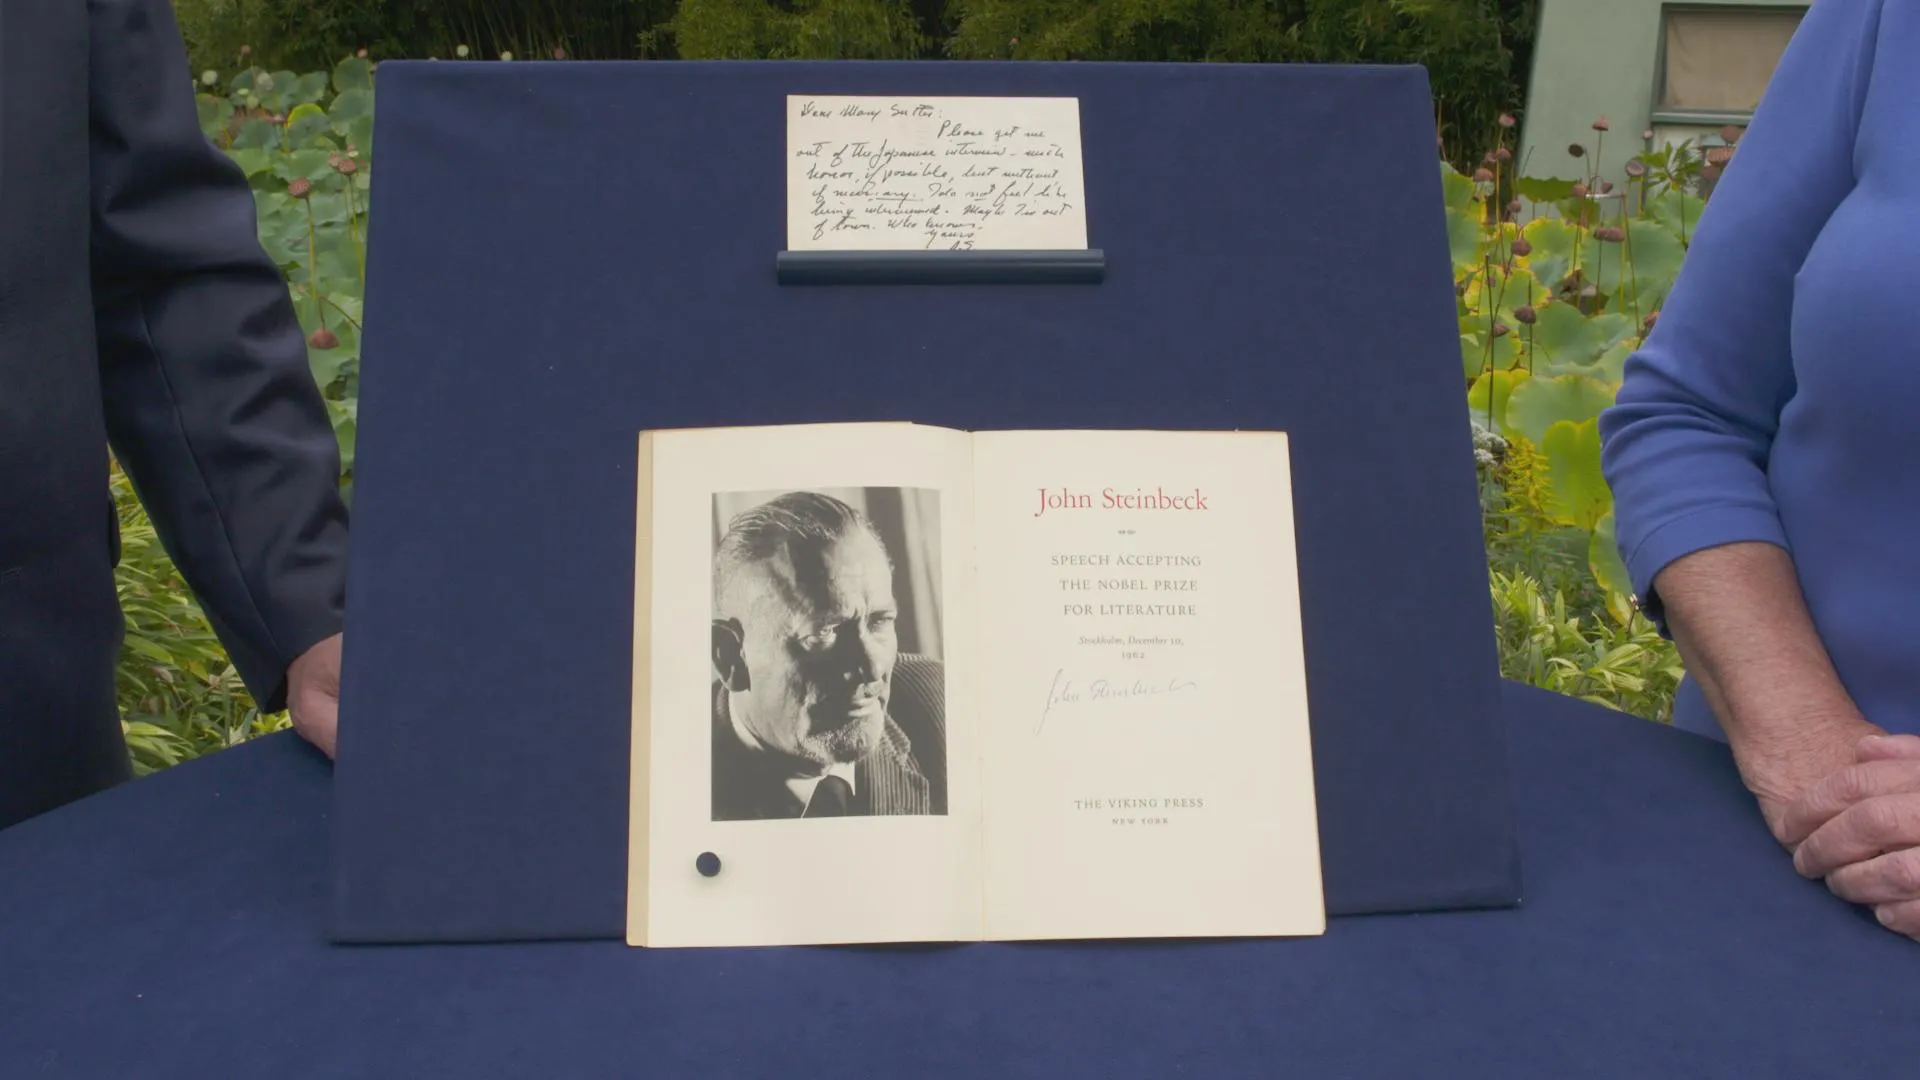 Dear Mary Sutter:
Please get me
out of the Japanese interview - with
honor, if possible, but without
if necessary. I do not feel like
being interviewed. Maybe I'm out
of town. Who knows.
Yours
J.S.
John Steinbeck
SPEECH ACCEPTING
THE NOBEL PRIZE
FOR LITERATURE
Stockholm, December 10,
1962
John Steinbeck
THE VIKING PRESS
NEW YORK